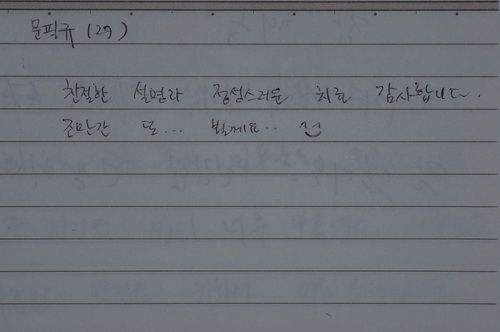 문필규 (29)
친절한 설명과 정성스러운 치료 감사합니다.
조만간 또... 뵐게요..